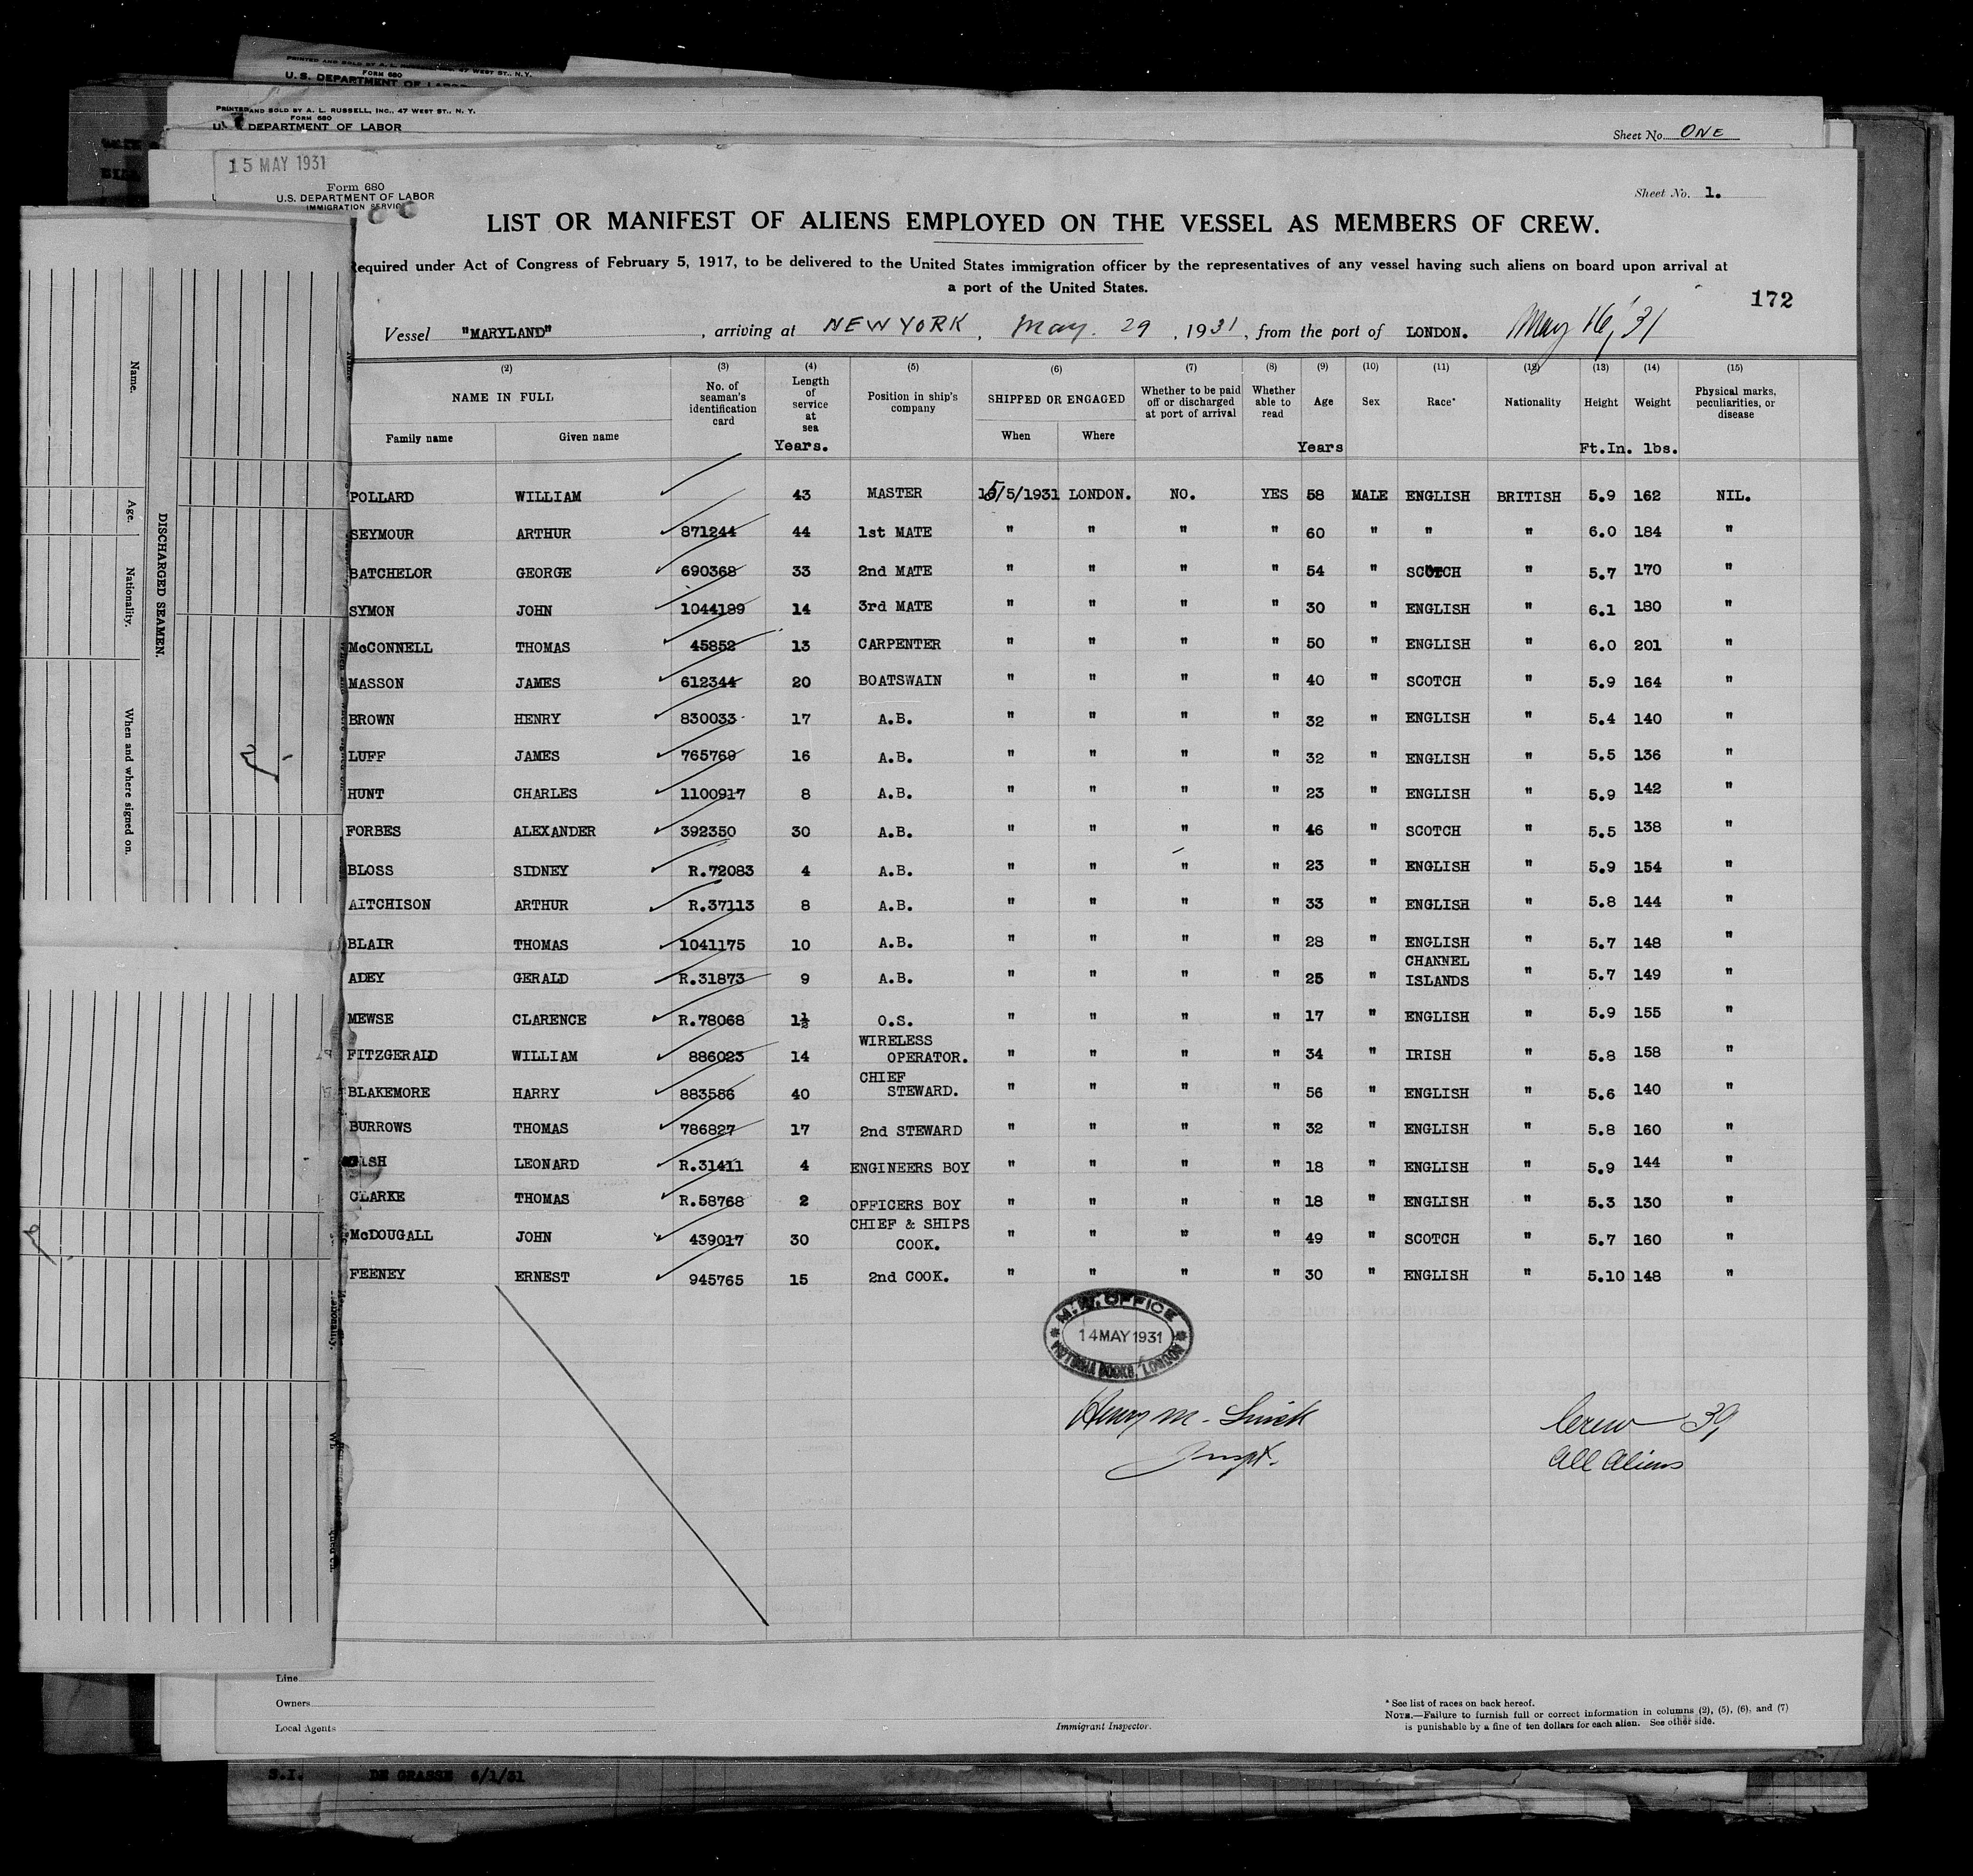 PRINTED AND SOLD BY A. L. RUSSELL, INC., 47 WEST ST., N.Y.
FORM 680
U.S. DEPARTMENT OF LABOR
PRINTED AND SOLD BY A. L. RUSSELL, INC., 47 WEST ST., N. Y.
FORM 680
DEPARTMENT OF LABOR
Sheet No. ONE
15 MAY 1931
Form 680
U.S. DEPARTMENT OF LABOR
IMMIGRATION SERVICE
Sheet No. 1.
LIST OR MANIFEST OF ALIENS EMPLOYED ON THE VESSEL AS MEMBERS OF CREW.
Required under Act of Congress of February 5, 1917, to be delivered to the United States immigration officer by the representatives of any vessel having such aliens on board upon arrival at
a port of the United States.
172
Vessel "MARYLAND", arriving at NEW YORK, May. 29, 1931, from the port of LONDON. May 16, '31
(2) (3) (4) (5) (6) (7) (8) (9) (10) (11) (12) (13) (14) (15)
NAME IN FULL No. of seaman's identification card Length of service at sea Position in ship's company SHIPPED OR ENGAGED Whether to be paid off or discharged at port of arrival Whether able to read Age Sex Race* Nationality Height Weight Physical marks, peculiarities, or disease
Family name Given name Years. When Where Years Ft.In. lbs.
POLLARD WILLIAM 43 MASTER 15/5/1931 LONDON. NO. YES 58 MALE ENGLISH BRITISH 5.9 162 NIL.
SEYMOUR ARTHUR 871244 44 1st MATE " " " " 60 " " " 6.0 184 "
BATCHELOR GEORGE 690368 33 2nd MATE " " " " 54 " SCOTCH " 5.7 170 "
SYMON JOHN 1044189 14 3rd MATE " " " " 30 " ENGLISH " 6.1 180 "
McCONNELL THOMAS 45852 13 CARPENTER " " " " 50 " ENGLISH " 6.0 201 "
MASSON JAMES 612344 20 BOATSWAIN " " " " 40 " SCOTCH " 5.9 164 "
BROWN HENRY 830033 17 A.B. " " " " 32 " ENGLISH " 5.4 140 "
LUFF JAMES 765769 16 A.B. " " " " 32 " ENGLISH " 5.5 136 "
HUNT CHARLES 1100917 8 A.B. " " " " 23 " ENGLISH " 5.9 142 "
FORBES ALEXANDER 392350 30 A.B. " " " " 46 " SCOTCH " 5.5 138 "
BLOSS SIDNEY R.72083 4 A.B. " " " " 23 " ENGLISH " 5.9 154 "
AITCHISON ARTHUR R.37113 8 A.B. " " " " 33 " ENGLISH " 5.8 144 "
BLAIR THOMAS 1041175 10 A.B. " " " " 28 " ENGLISH " 5.7 148 "
ADEY GERALD R.31873 9 A.B. " " " " 25 " CHANNEL ISLANDS " 5.7 149 "
MEWSE CLARENCE R.78068 1½ O.S. " " " " 17 " ENGLISH " 5.9 155 "
FITZGERALD WILLIAM 886023 14 WIRELESS OPERATOR. " " " " 34 " IRISH " 5.8 158 "
BLAKEMORE HARRY 883556 40 CHIEF STEWARD. " " " " 56 " ENGLISH " 5.6 140 "
BURROWS THOMAS 786827 17 2nd STEWARD " " " " 32 " ENGLISH " 5.8 160 "
LEONARD R.31411 4 ENGINEERS BOY " " " " 18 " ENGLISH " 5.9 144 "
CLARKE THOMAS R.58768 2 OFFICERS BOY " " " " 18 " ENGLISH " 5.3 130 "
McDOUGALL JOHN 439017 30 CHIEF & SHIPS COOK. " " " " 49 " SCOTCH " 5.7 160 "
FEENEY ERNEST 945765 15 2nd COOK. " " " " 30 " ENGLISH " 5.10 148 "
M.W. OFFICE
14 MAY 1931
LONDON
Henry M.
Inspt.
Crew 39,
All Aliens
Name.
Age.
Nationality.
When and where signed on.
DISCHARGED SEAMEN.
Line
Owners
Local Agents
Immigrant Inspector.
* See list of races on back hereof.
NOTE.—Failure to furnish full or correct information in columns (2), (5), (6), and (7)
is punishable by a fine of ten dollars for each alien. See other side.
S.I. DE GRASSE 6/1/31